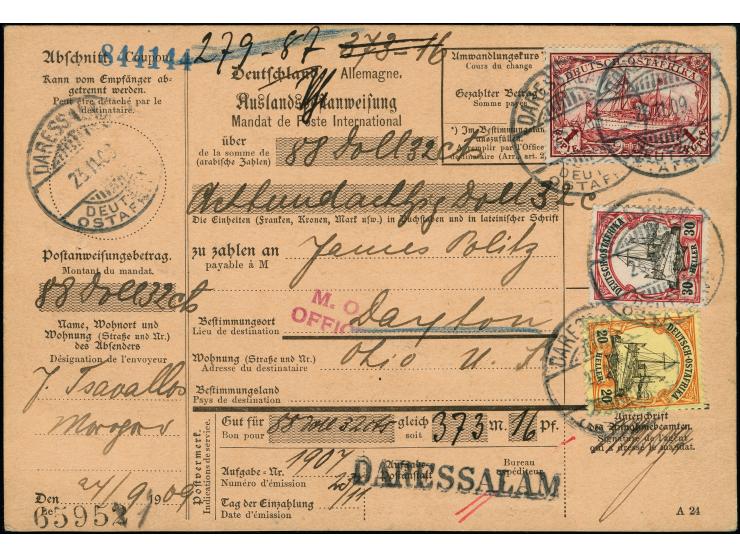 Abschnitt. Coupon.
844144
279-87
373-16
Kann vom Empfänger ab-
getrennt werden.
Peut être détaché par le
destinataire.
DARESSALAM
DEUTSCH
OSTAFRIKA
Deutschland. Allemagne.
Auslands-Postanweisung
Mandat de Poste International
über
de la somme de
(arabische Zahlen)
88 Doll 32 cts
Umwandlungskurs
Cours du change
Gezahlter Betrag
Somme payée
*) Im Bestimmungsland
auszufüllen.
A remplir par l'Office
destinataire (Arr. art. 2,
DEUTSCH-OSTAFRIKA
1 RUPIE 1 RUPIE
Achtundachtzig Doll 32 c
Die Einheiten (Franken, Kronen, Mark usw.) in Buchstaben und in lateinischer Schrift
zu zahlen an
payable à M
James Politz
Postanweisungsbetrag.
Montant du mandat.
88 Doll 32 cts
M. O.
OFFIC
Bestimmungsort
Lieu de destination
Dayton
DEUTSCH-OSTAFRIKA
30 HELLER 30
Name, Wohnort und
Wohnung (Straße und Nr.)
des Absenders
Désignation de l'envoyeur
Wohnung (Straße und Nr.)
Adresse du destinataire
Ohio U. S.
Bestimmungsland
Pays de destination
DEUTSCH-OSTAFRIKA
20 HELLER 20
J. Tsavallos
Morogoro
Postvermerk.
Indications de service.
Gut für
Bon pour
88 Doll 32 cts
gleich
soit
373 M. 16 Pf.
Unterschrift
des Annahmebeamten.
Signature de l'agent
qui a dressé le mandat.
Aufgabe-Nr.
Numéro d'émission
1907
Aufgabe-
Postanstalt
Bureau
expéditeur
DARESSALAM
Tag der Einzahlung
Date d'émission
Den
Le
21/9 1909
65952
A 24